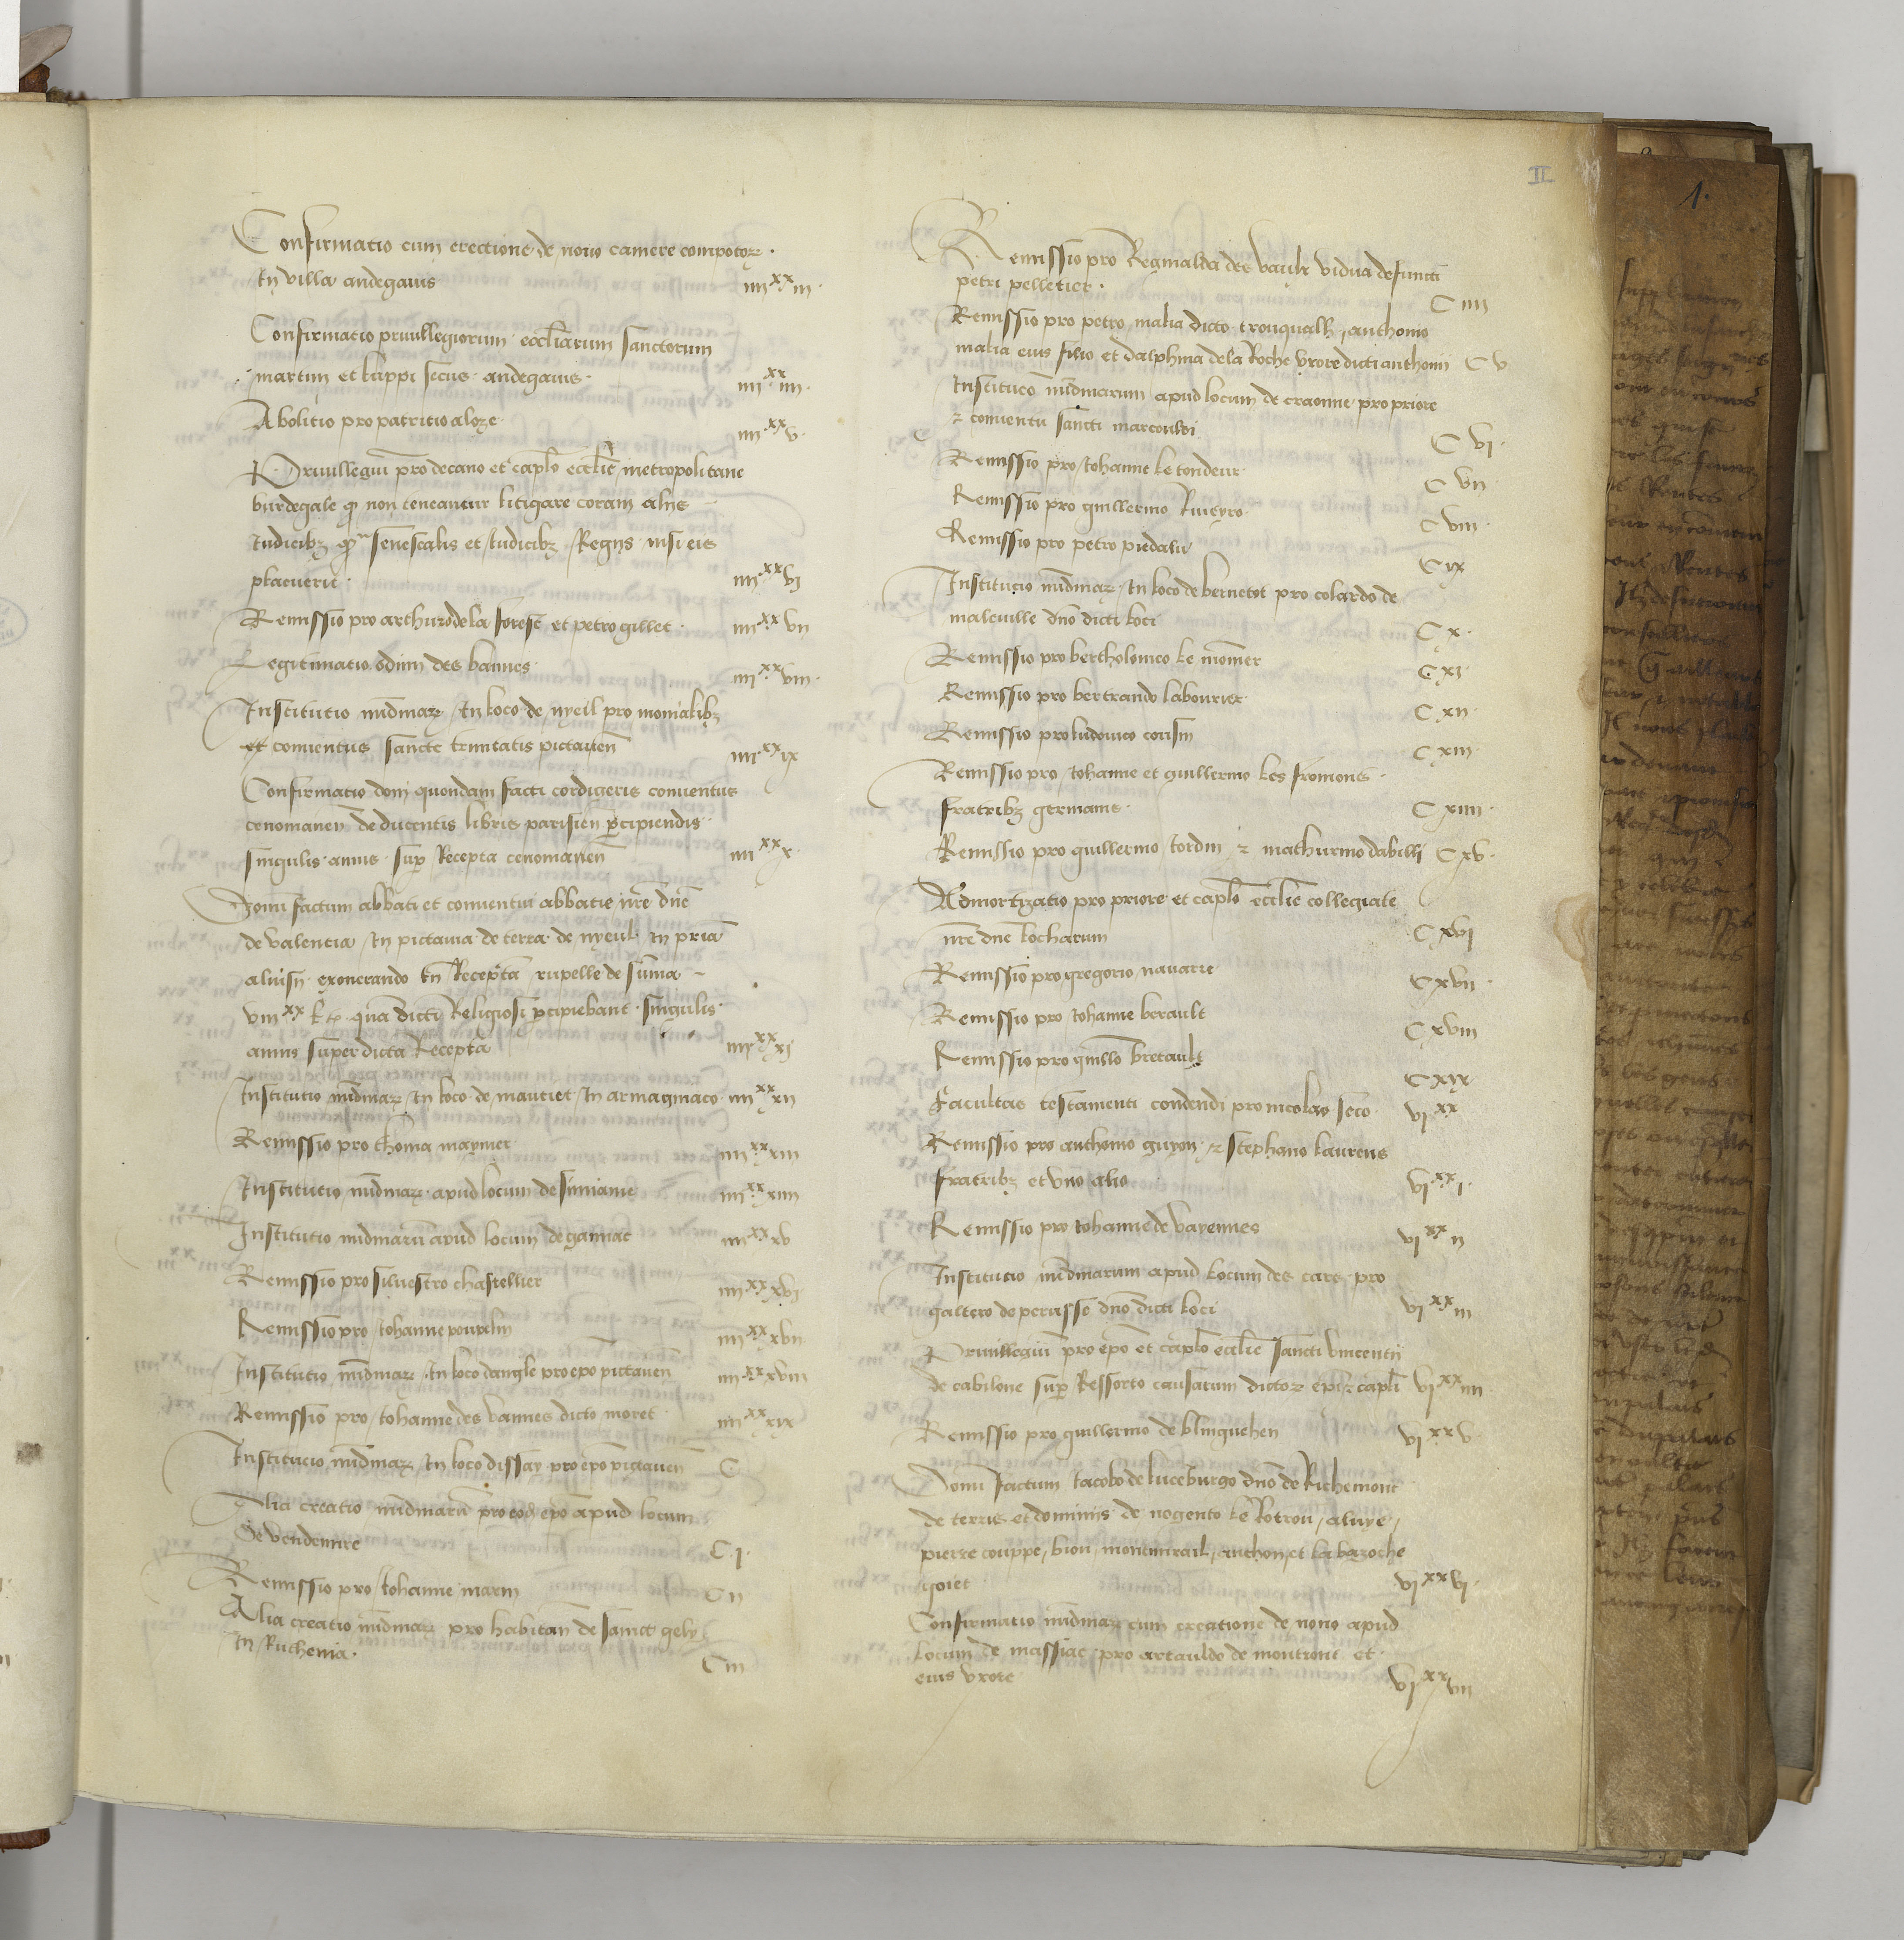 II
Confirmatio cum erectione de novo camere compotoꝝ
In villa andegavis iiii^xx iii
Confirmatio privillegiorum eccl̄iarum sanctorum
martini et lappi secus andegavis iiii^xx iiii
Abolitio pro patritio aloze iiii^xx v
Privillegiū pro decano et cap̄lo eccl̄ie metropolitane
burdegale ꝙ non teneantur litigare coram aliis
Iudicibꝫ ꝙ senescalis et Iudicibꝫ Regiis nisi eis
placuerit iiii^xx vi
Remissio pro arthuro de la forest et petro gillet iiii^xx vii
Legitimatio odini des bannes iiii^xx viii
Institutio nūdinaꝝ In loco de nyeil pro monialibꝫ
et conventus sancte trinitatis pictaven̄ iiii^xx ix
Confirmatio doni quondam facti cordigeris conventus
cenomanen̄ de ducentis libris parisien̄ ꝑcipiendis
singulis annis sup̄ Recepta cenomanen̄ iiii^xx x
Donū factum abbati et conventui abbatie nr̄e dn̄e
de valentia In pictavia de terra de nyeul In pr̄ia
alnisii exonerando In Recepta rupelle de sūma
viii^xx l. t. quā dicti Religiosi ꝑcipiebant singulis
annis super dicta Recepta iiii^xx xi
Institutio nūdinaꝝ In loco de mauriet In armagniaco iiii^xx xii
Remissio pro thoma maynier iiii^xx xiii
Institucio nūdinaꝝ apud locum de simiane iiii^xx xiiii
Institutio nūdinarū apud locum de gannac iiii^xx xv
Remissio pro silvestro chastellier iiii^xx xvi
Remissio pro Iohanne poupelin iiii^xx xvii
Institutio nūdinaꝝ In loco dangle pro ep̄o pictaven̄ iiii^xx xviii
Remissio pro Iohanne des vannes dicto moret iiii^xx xix
Institucio nūdinaꝝ In loco dissay pro ep̄o pictaven̄ C
Alia creatio nūdinarū pro eod̄ ep̄o apud locum
de vendeuvre C i
Remissio pro Iohanne marin C ii
Alia creatio nūdinaꝝ pro habitan̄ de sanct gely
In Ruthenia C iii
Remissio pro Reginalda des vaulx vidua defuncti
petri pelletier C iiii
Remissio pro petro malia dicto tronqualh, anthonio
malia eius filio et dalphina de la Roche uxore dicti anthonii C v
Institucō nūdinarum apud locum de craonne pro priore
⁊ conventu sancti marcouldi C vi
Remissio pro Iohanne le tondeur C vii
Remissio pro guillermo Riveyro C viii
Remissio pro petro piedalu C ix
Institucio nūdinaꝝ In loco de bernetot pro colardo de
maleville dn̄o dicti loci C x
Remissio pro bertholomeo le monnier C xi
Remissio pro bertrando labourier C xii
Remissio pro ludovico cousin C xiii
Remissio pro Iohanne et guillermo les fromons
fratribꝫ germanis C xiiii
Remissio pro guillermo Iordin ⁊ mathurino dabilli C xv
Admortizatio pro priore et cap̄lo eccl̄ie collegiate
nr̄e dn̄e locharum C xvi
Remissio pro gregorio navarre C xvii
Remissio pro Iohanne berault C xviii
Remissio pro guill̄o bretault C xix
Facultas testamenti condendi pro nicolao seco vi^xx
Remissio pro anthonio guyon ⁊ stephano laurens
fratribꝫ et uno alio vi^xx i
Remissio pro Iohanne de varennes vi^xx ii
Institucio nūdinarum apud locum des cars pro
galtero de perusse dn̄o dicti loci vi^xx iii
Privillegiū pro ep̄o et cap̄lo eccl̄ie sancti vincentii
de cabilone sup̄ Ressorto causarum dictoꝝ ep̄i ⁊ cap̄li vi^xx iiii
Remissio pro guillermo de blinguehen vi^xx v
Donū factum Iacobo de luceburgo dn̄o de Richemont
de terris et dominiis de nogento le Rotrou, aluye,
pierre couppe, biou, montmirail, anthon et la bazoche
goiet vi^xx vi
Confirmatio nūdinaꝝ cum creatione de novo apud
locum de massiac pro artauldo de montront et
eius uxore vi^xx vii